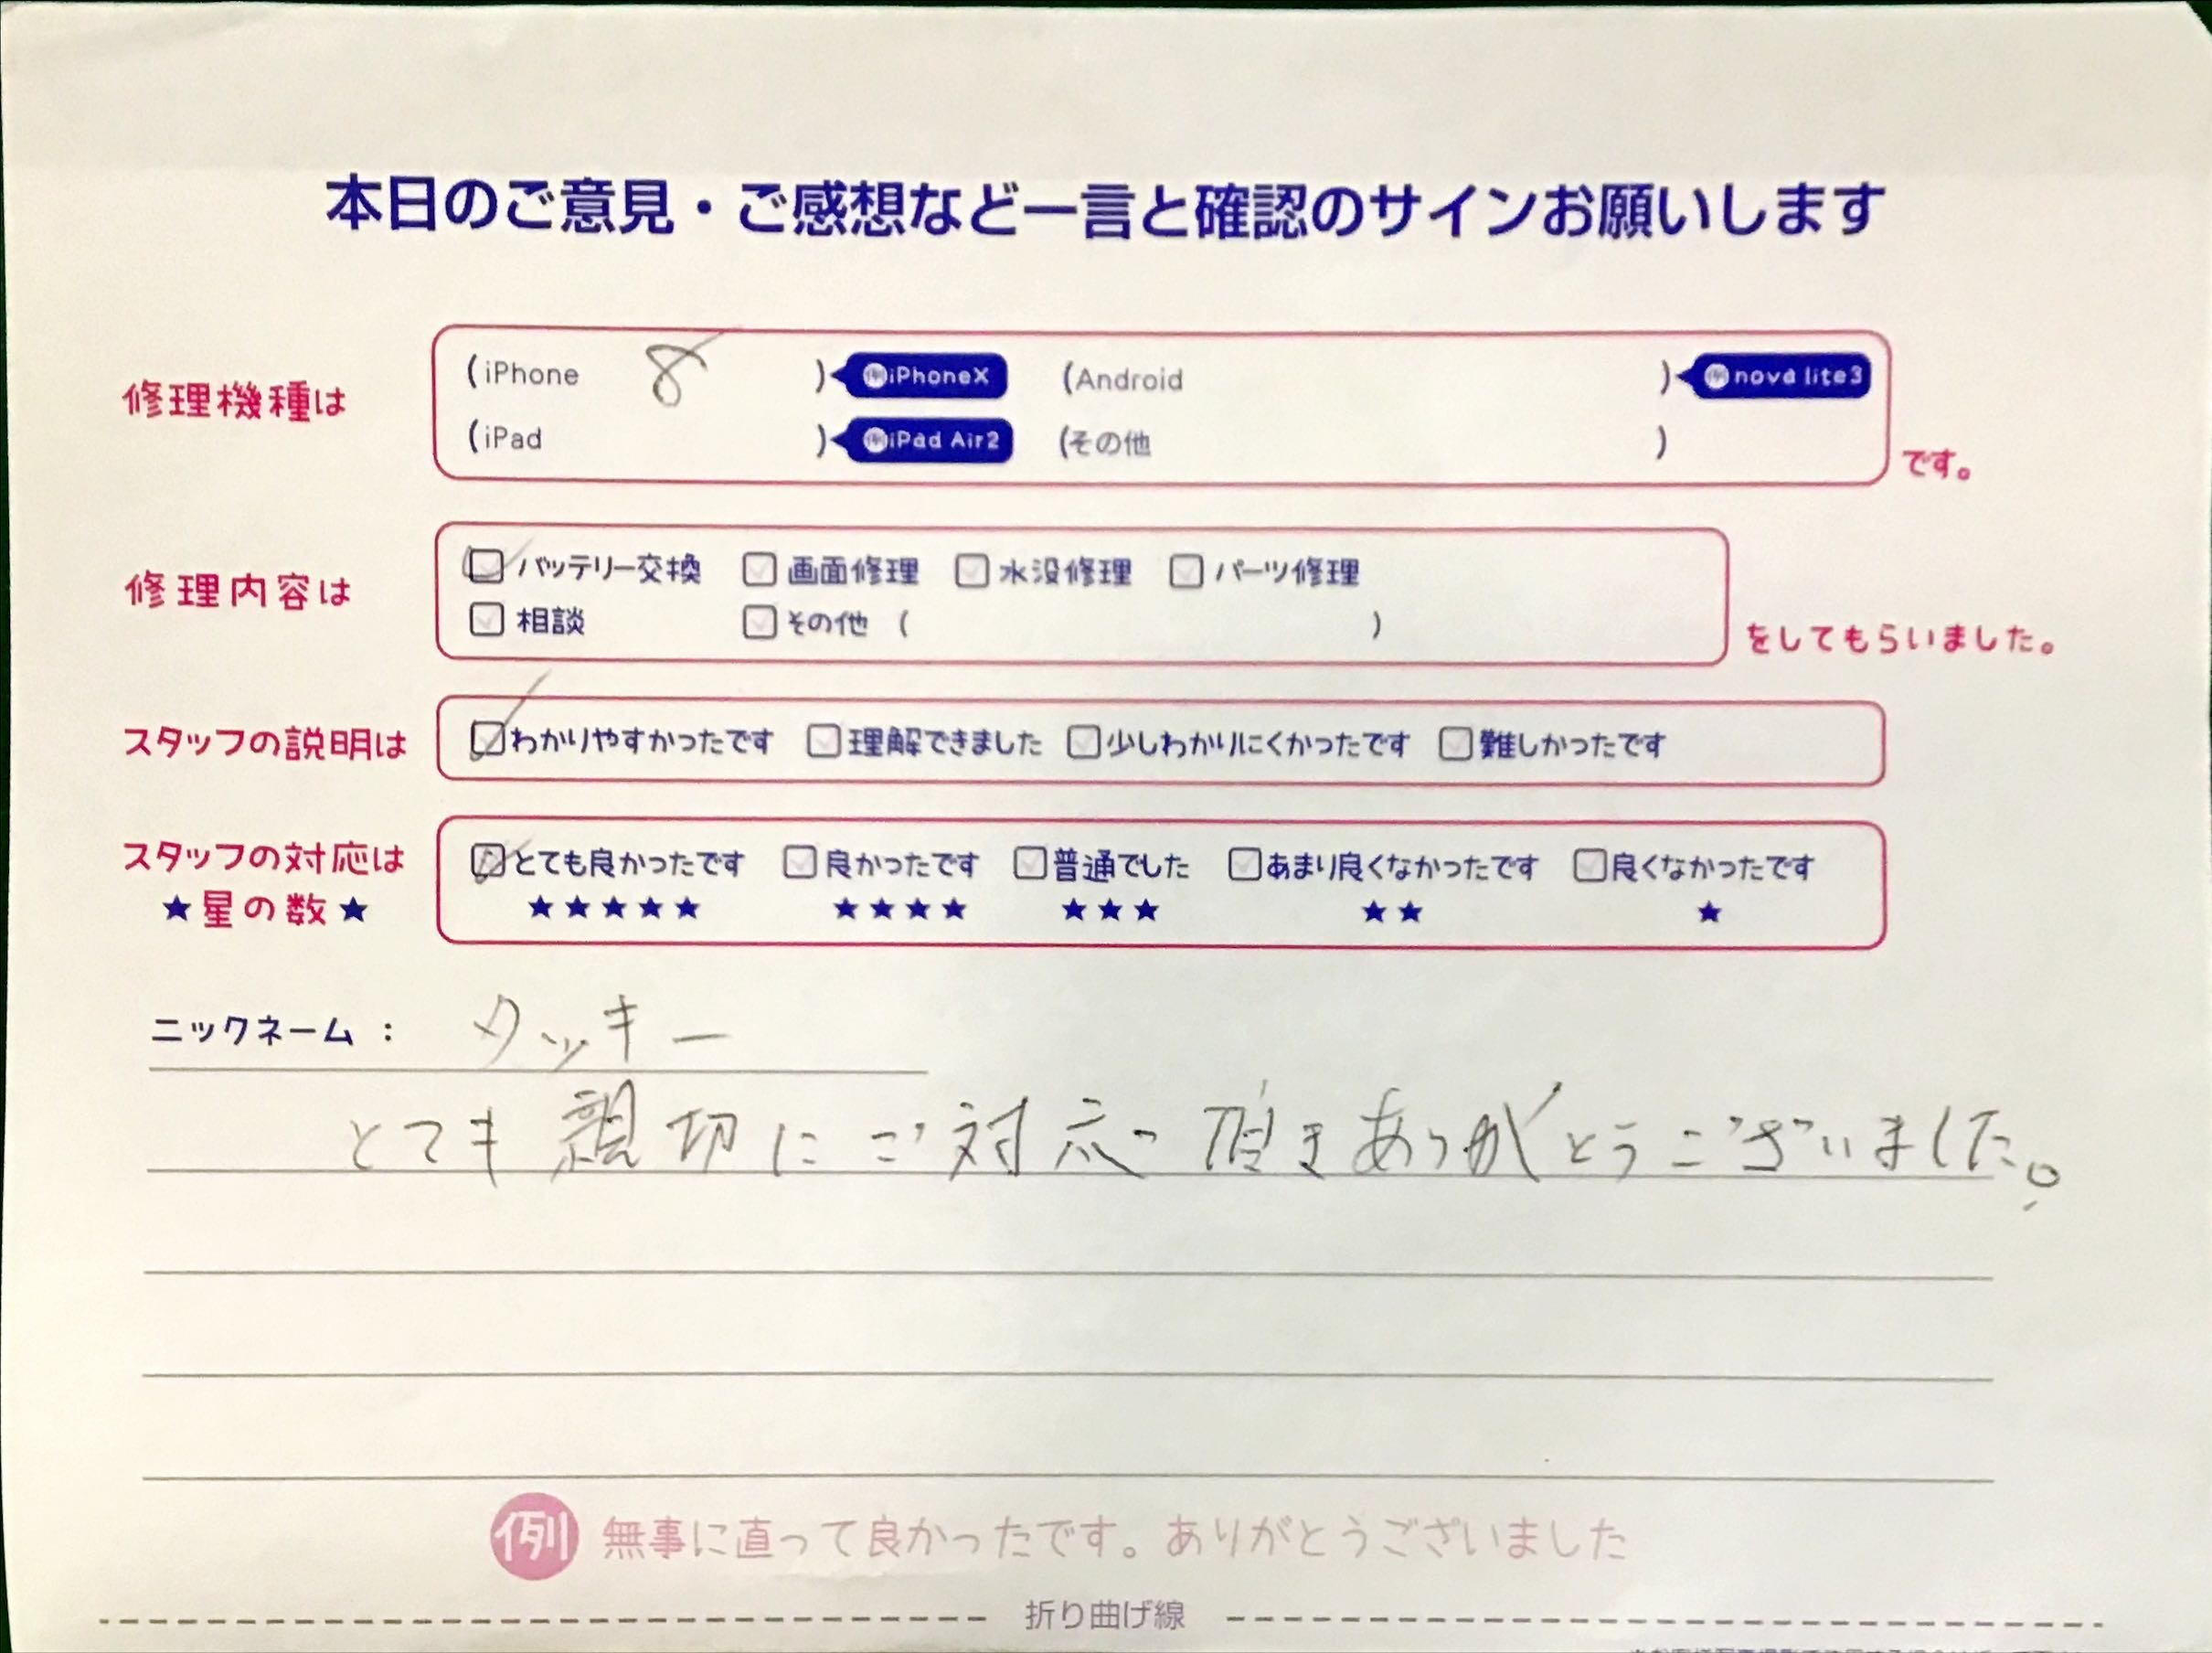 本日のご意見・ご感想など一言と確認のサインお願いします
修理機種は
(iPhone 8 ) 例iPhoneX (Android ) 例nova lite3
(iPad ) 例iPad Air2 (その他 ) です。
修理内容は
バッテリー交換 画面修理 水没修理 パーツ修理
相談 その他 ( ) をしてもらいました。
スタッフの説明は わかりやすかったです 理解できました 少しわかりにくかったです 難しかったです
スタッフの対応は とても良かったです 良かったです 普通でした あまり良くなかったです 良くなかったです
★星の数★ ★★★★★ ★★★★ ★★★ ★★ ★
ニックネーム： タッキー
とても親切にご対応頂きありがとうございました。
例 無事に直って良かったです。ありがとうございました
折り曲げ線